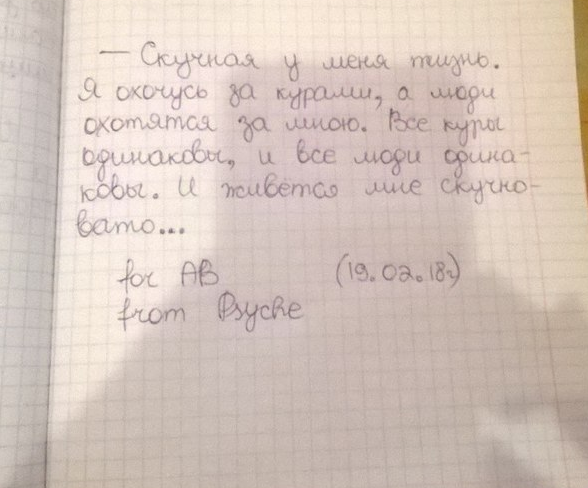 — Скучная у меня жизнь.
Я охочусь за курами, а люди
охотятся за мною. Все куры
одинаковы, и все люди одина-
ковы. И живётся мне скучно-
вато...
for AB (19.02.18г)
from Psyche